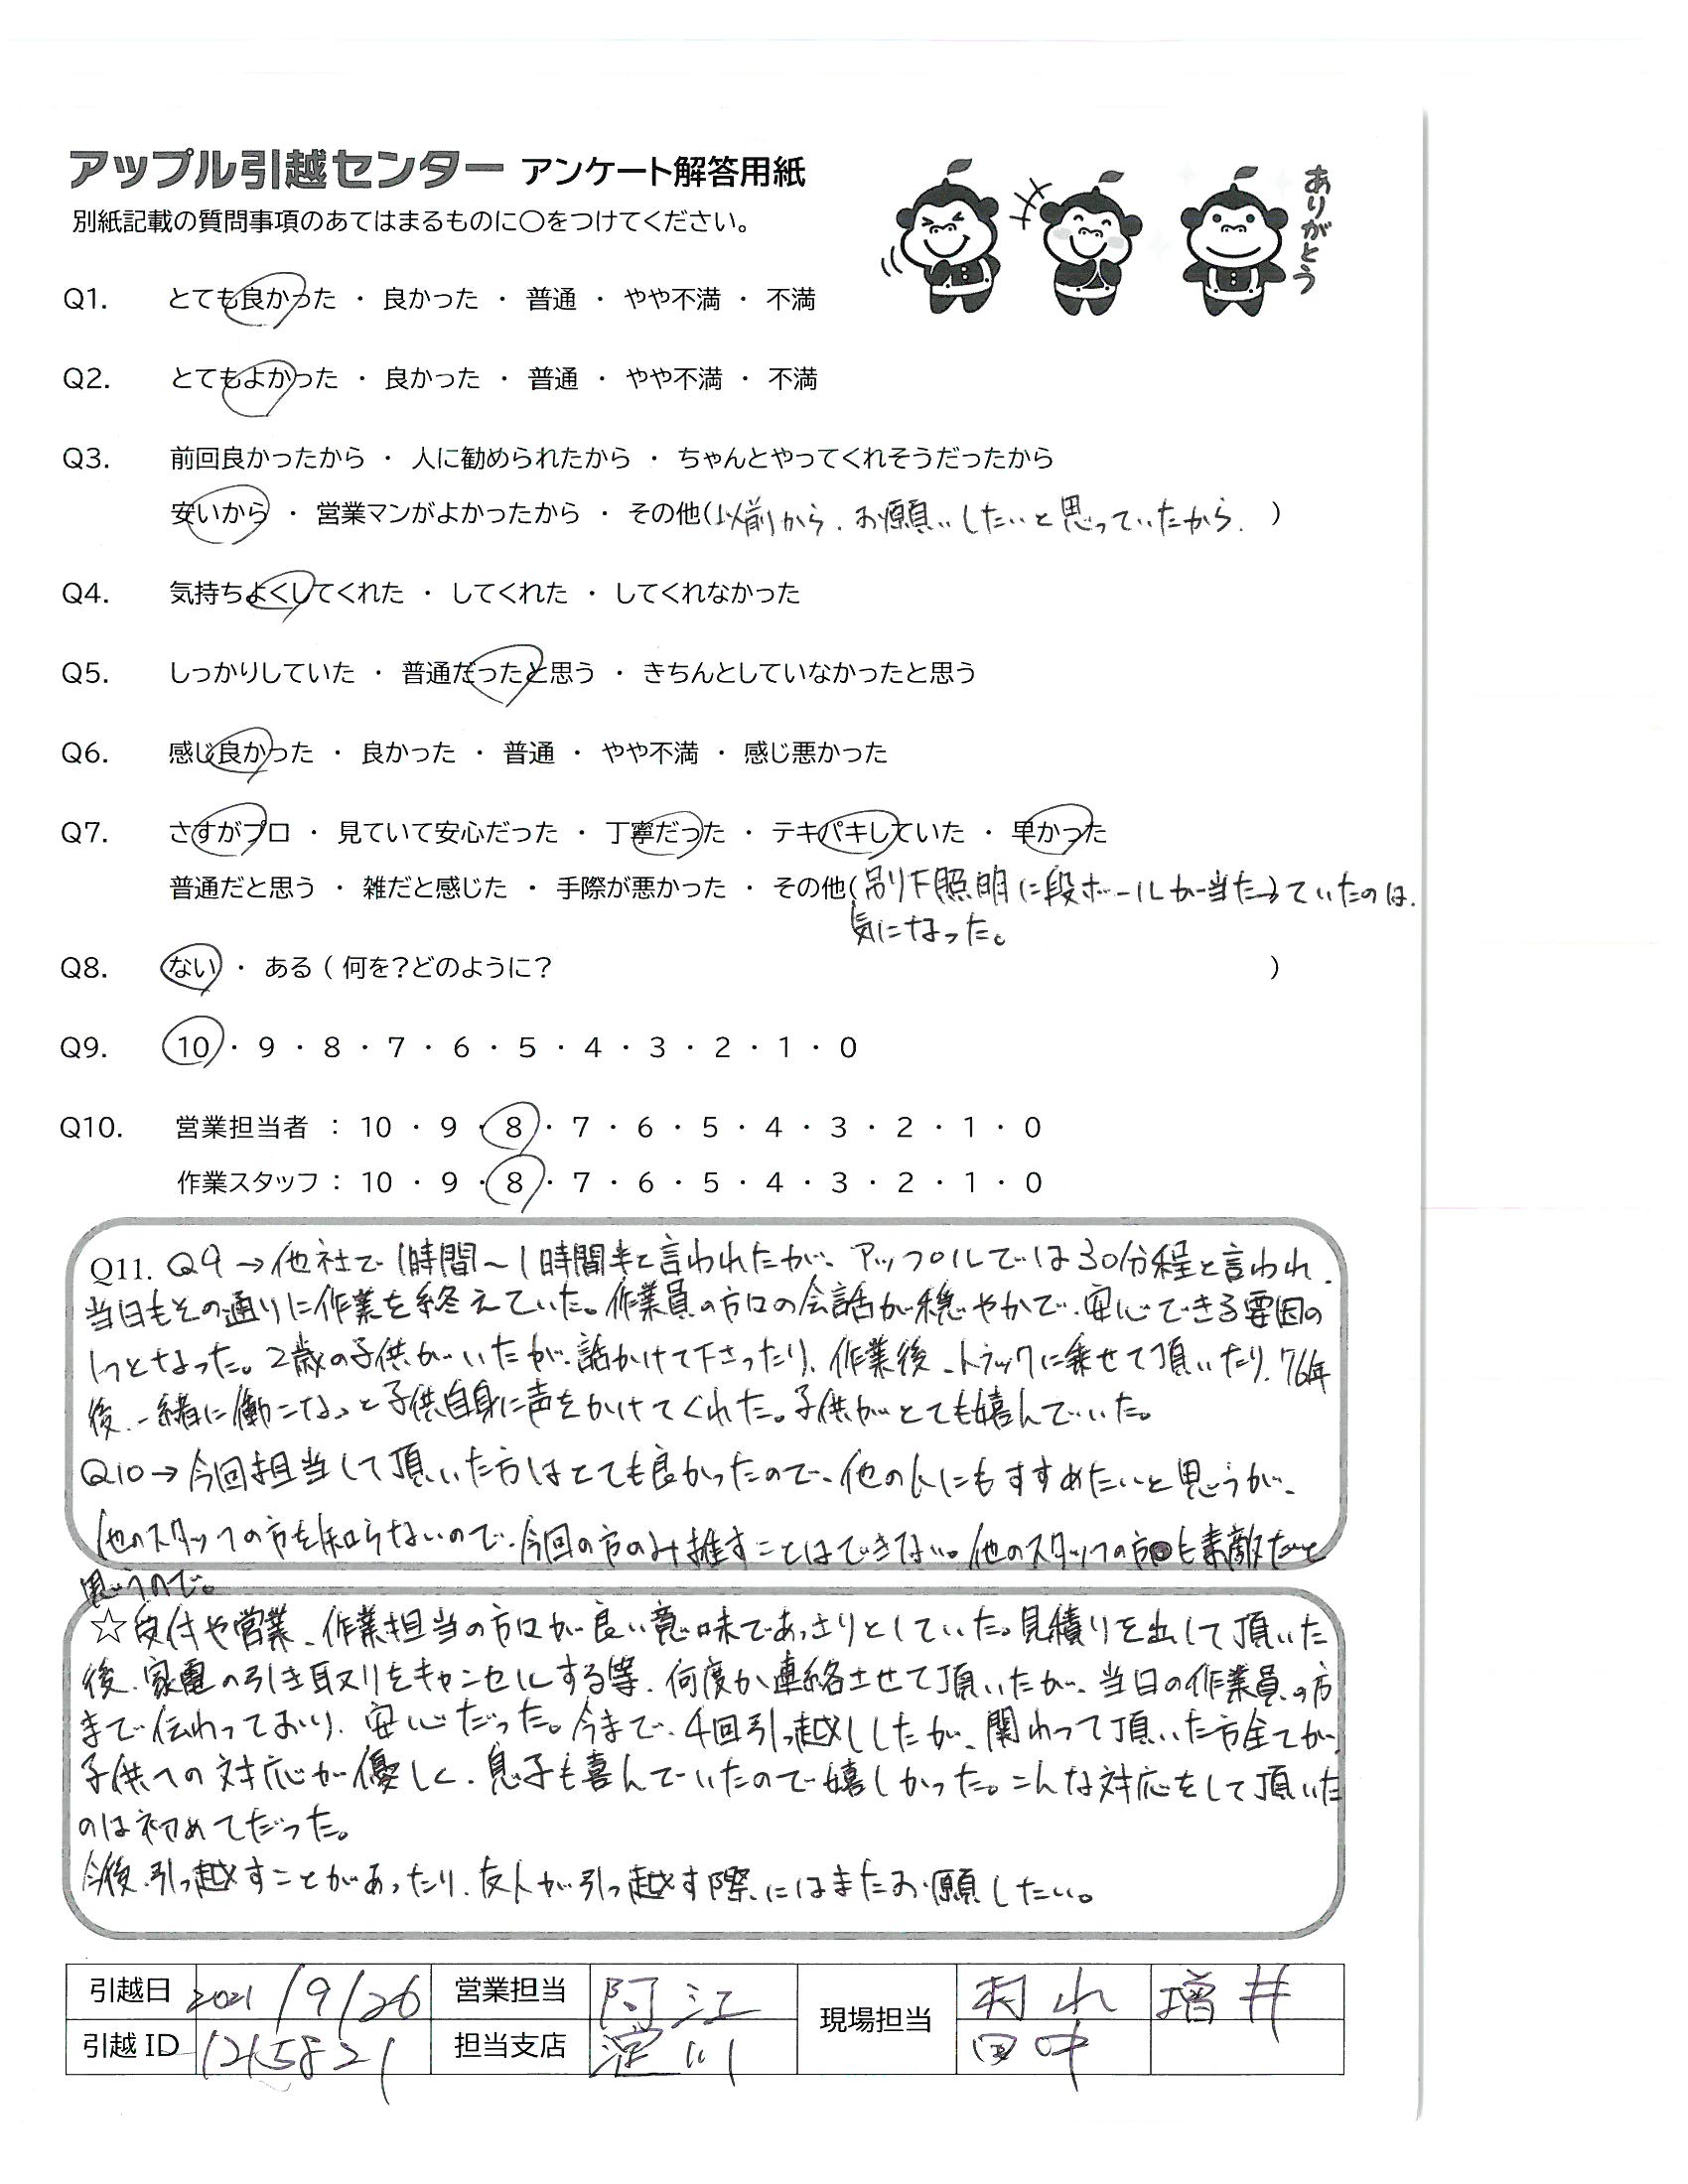 アップル引越センター アンケート解答用紙
別紙記載の質問事項のあてはまるものに〇をつけてください。
ありがとう
Q1. とても良かった ・ 良かった ・ 普通 ・ やや不満 ・ 不満
Q2. とてもよかった ・ 良かった ・ 普通 ・ やや不満 ・ 不満
Q3. 前回良かったから ・ 人に勧められたから ・ ちゃんとやってくれそうだったから
安いから ・ 営業マンがよかったから ・ その他(以前から、お願いしたいと思っていたから、 )
Q4. 気持ちよくしてくれた ・ してくれた ・ してくれなかった
Q5. しっかりしていた ・ 普通だったと思う ・ きちんとしていなかったと思う
Q6. 感じ良かった ・ 良かった ・ 普通 ・ やや不満 ・ 感じ悪かった
Q7. さすがプロ ・ 見ていて安心だった ・ 丁寧だった ・ テキパキしていた ・ 早かった
普通だと思う ・ 雑だと感じた ・ 手際が悪かった ・ その他(吊り下照明に段ボールが当たっていたのは、
気になった。
Q8. ない ・ ある ( 何を?どのように? )
Q9. 10 ・ 9 ・ 8 ・ 7 ・ 6 ・ 5 ・ 4 ・ 3 ・ 2 ・ 1 ・ 0
Q10. 営業担当者 : 10 ・ 9 ・ 8 ・ 7 ・ 6 ・ 5 ・ 4 ・ 3 ・ 2 ・ 1 ・ 0
作業スタッフ : 10 ・ 9 ・ 8 ・ 7 ・ 6 ・ 5 ・ 4 ・ 3 ・ 2 ・ 1 ・ 0
Q11. Q9→他社で1時間〜1時間半と言われたが、アップルでは30分程と言われ、
当日もその通りに作業を終えていた。作業員の方々の会話が穏やかで、安心できる要因の
1つとなった。2歳の子供がいたが、話かけて下さったり、作業後、トラックに乗せて頂いたり、16年
後、一緒に働こな、と子供自身に声をかけてくれた。子供がとても嬉んでいた。
Q10→今回担当して頂いた方はとても良かったので、他の人にもすすめたいと思うが、
他のスタッフの方を知らないので、今回の方のみ推すことはできない。他のスタッフの方も素敵だと
思うので。
☆受付や営業、作業担当の方々が良い意味であっさりとしていた。見積りを出して頂いた
後、家電の引き取りをキャンセルする等、何度か連絡させて頂いたが、当日の作業員の方
まで伝わっており、安心だった。今まで、4回引っ越ししたが、関わって頂いた方全てが、
子供への対応が優しく、息子も喜んでいたので嬉しかった。こんな対応をして頂いた
のは初めてだった。
今後、引っ越すことがあったり、友人が引っ越す際にはまたお願したい。
引越日 2021/9/26 営業担当 阿江 現場担当 増井
引越ID 1215821 担当支店 淀川 田中